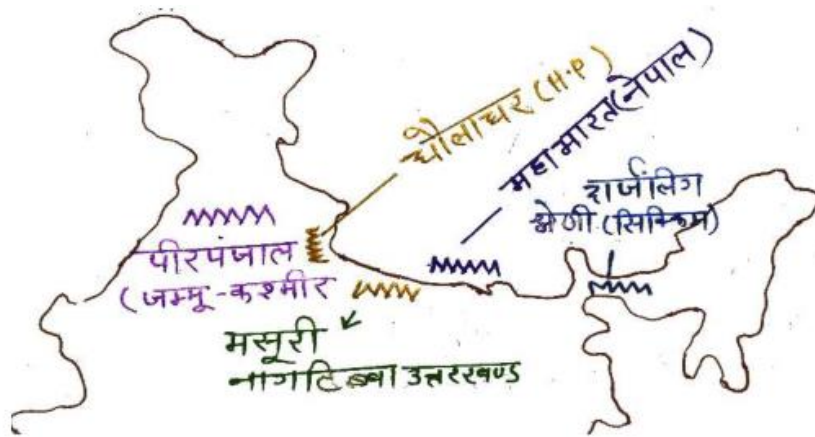 धौलाधर (H.P)
महाभारत (नेपाल)
दार्जलिंग
श्रेणी (सिक्किम)
पीरपंजाल
(जम्मू-कश्मीर
मसूरी
नागटिब्बा उत्तरखण्ड